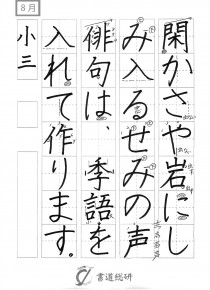 8月
閑かさや岩にし
み入るせみの声
俳句は、季語を
入れて作ります。
小三
書道総研